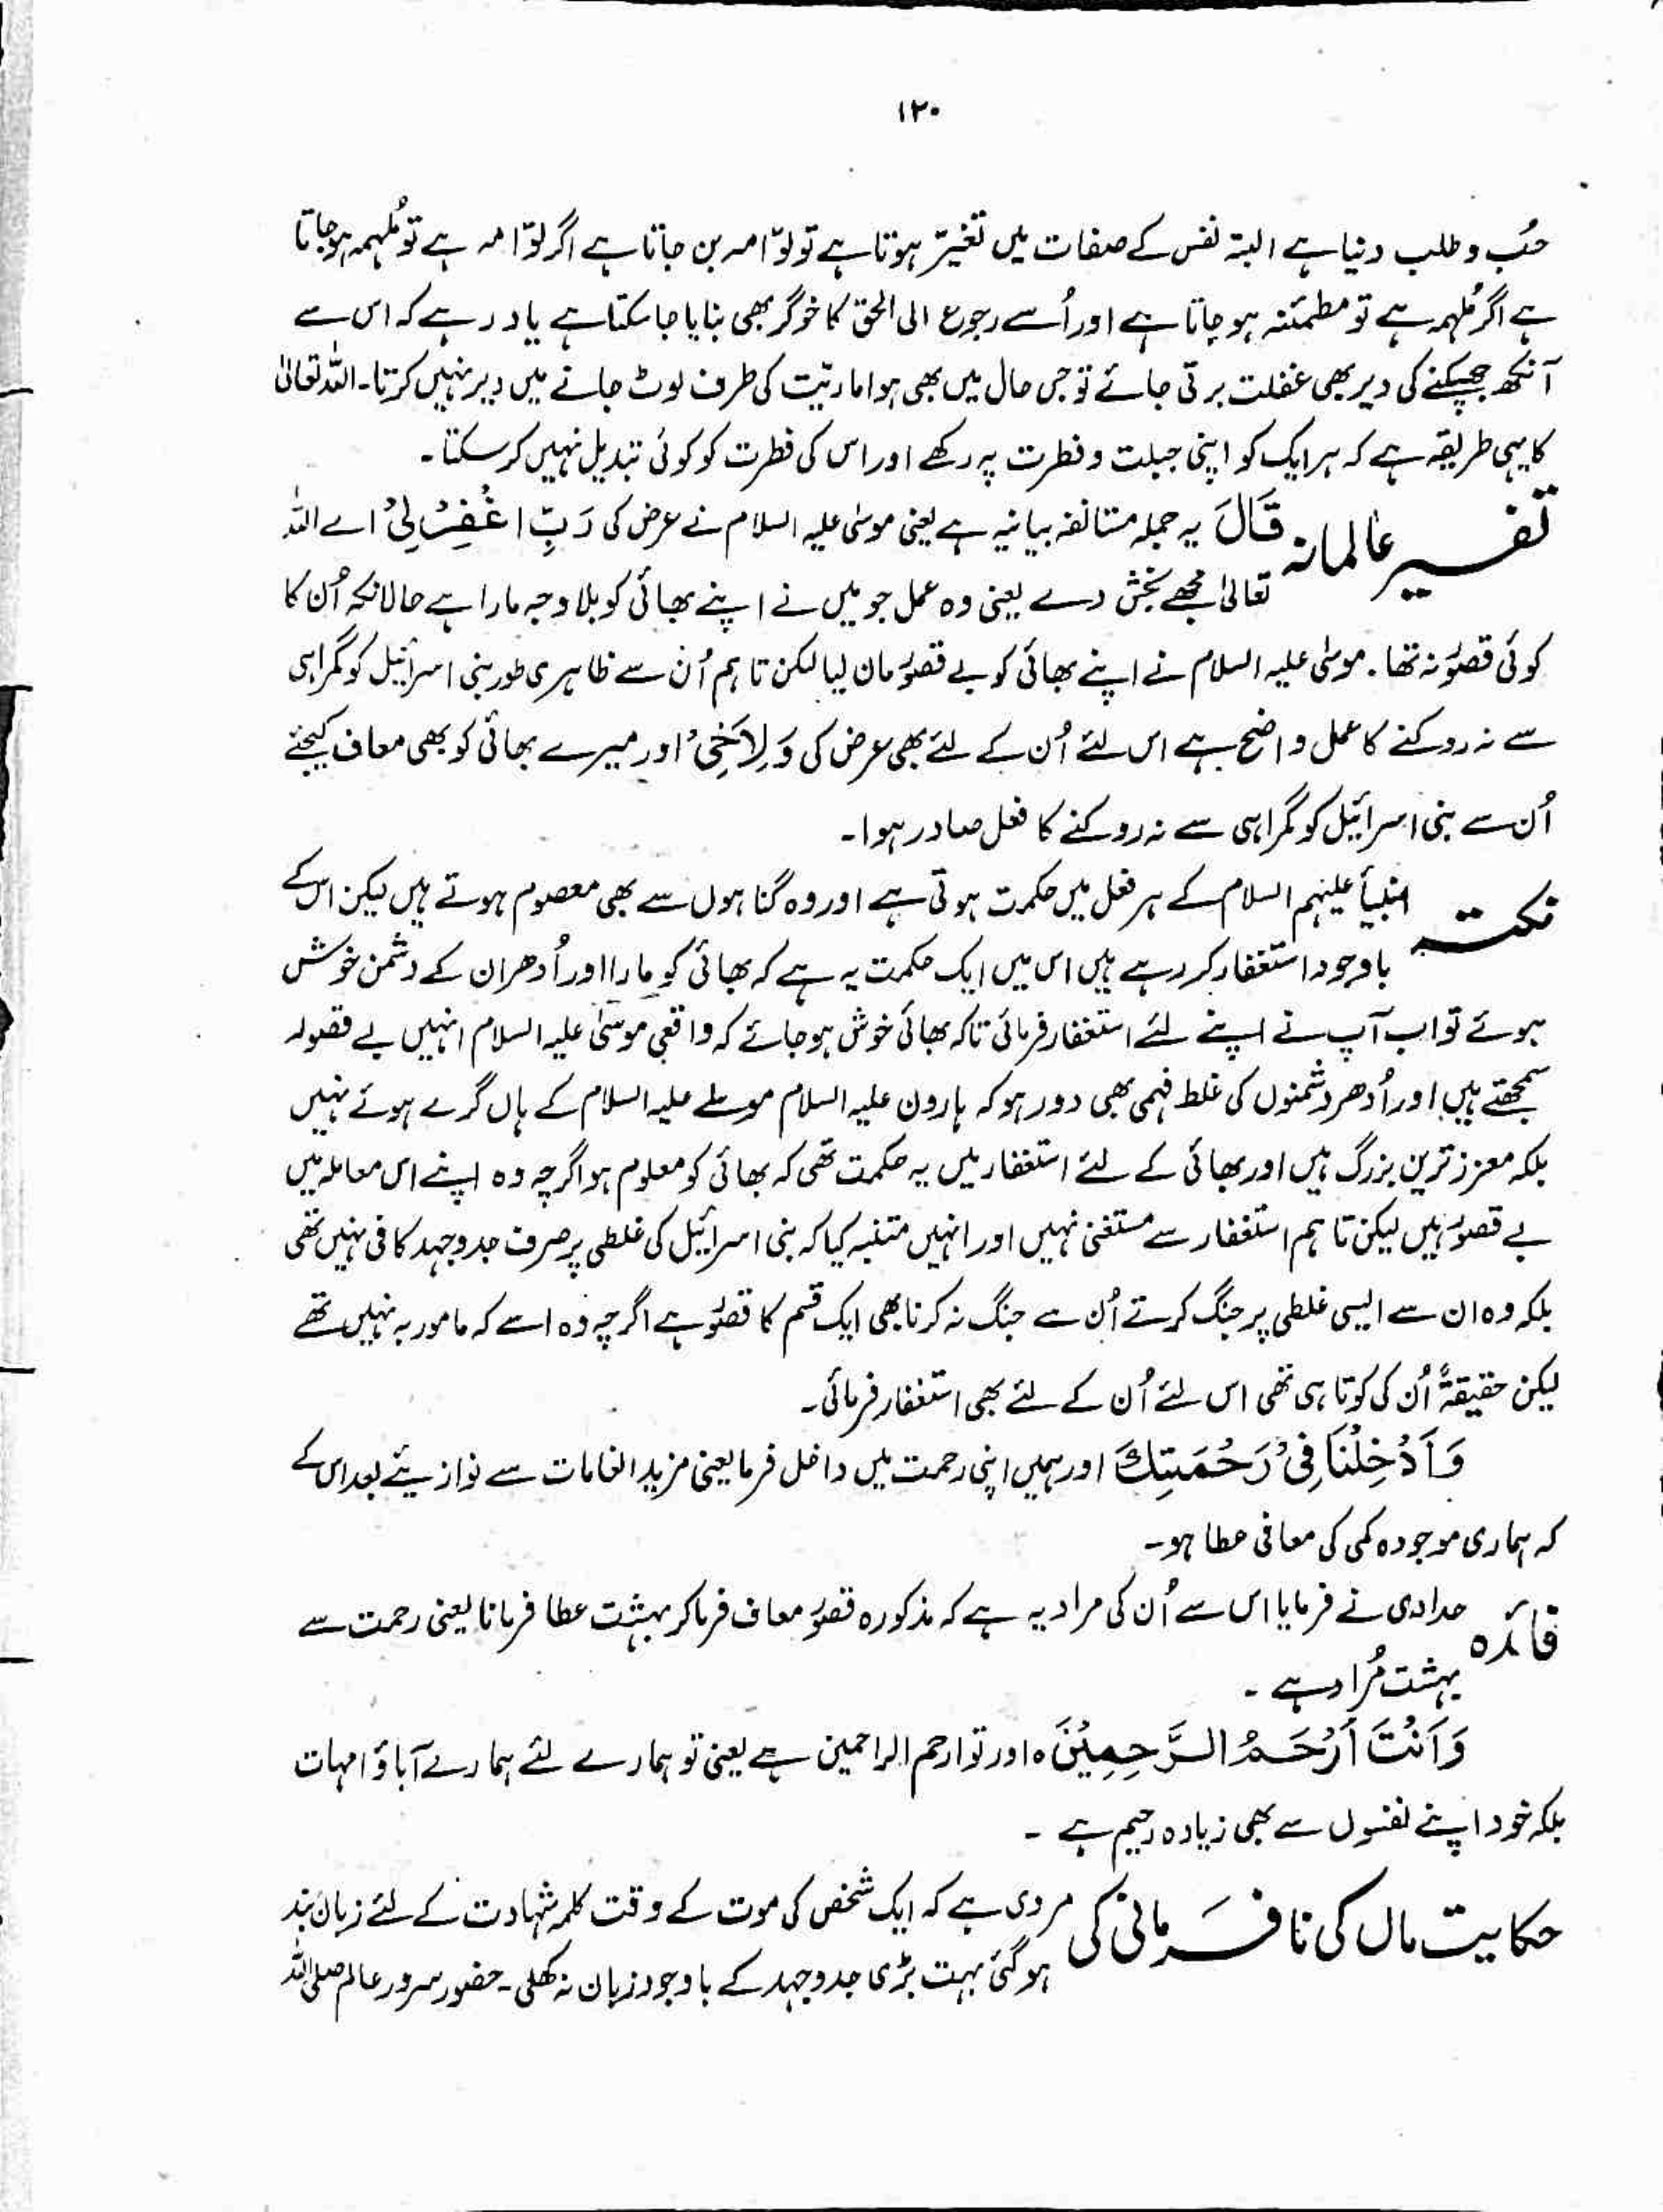 ۱۲۰
حُب و طلب دنیا ہے البتہ نفس کے صفات میں تغیّر ہوتا ہے تو لوّامہ بن جاتا ہے اگر لوّامہ ہے تو مُلہمہ ہو جاتا
ہے اگر مُلہمہ ہے تو مطمئنہ ہو جاتا ہے اور اُسے رجوع الی الحق کا خوگر بھی بنایا جا سکتا ہے یاد رہے کہ اس سے
آنکھ جھپکنے کی دیر بھی غفلت برتی جائے تو جس حال میں بھی ہو امّاریّت کی طرف لوٹ جانے میں دیر نہیں کرتا۔ اللہ تعالیٰ
کا یہی طریقہ ہے کہ ہر ایک کو اپنی جبلت و فطرت پہ رکھے اور اس کی فطرت کو کوئی تبدیل نہیں کر سکتا۔
تفسیر عالمانہ قَالَ یہ جملہ مستانفہ بیانیہ ہے یعنی موسیٰ علیہ السلام نے عرض کی رَبِّ اغْفِرْ لِیْ اے اللہ
تعالیٰ مجھے بخش دے یعنی وہ عمل جو میں نے اپنے بھائی کو بلا وجہ مارا ہے حالانکہ اُن کا
کوئی قصوُر نہ تھا۔ موسیٰ علیہ السلام نے اپنے بھائی کو بے قصوُر مان لیا لکن تاہم اُن سے ظاہری طور بنی اسرائیل کو گمراہی
سے نہ روکنے کا عمل واضح ہے اس لئے اُن کے لئے بھی عرض کی وَ لِاَخِیْ اور میرے بھائی کو بھی معاف کیجئے
اُن سے بنی اسرائیل کو گمراہی سے نہ روکنے کا فعل صادر ہوا۔
نکتہ انبیأ علیہم السلام کے ہر فعل میں حکمت ہوتی ہے اور وہ گناہوں سے بھی معصوم ہوتے ہیں لیکن اس کے
باوجود استغفار کر رہے ہیں اس میں ایک حکمت یہ ہے کہ بھائی کو مارا اور اُدھر ان کے دشمن خوش
ہوئے تو اب آپ نے اپنے لئے استغفار فرمائی تاکہ بھائی خوش ہو جائے کہ واقعی موسیٰ علیہ السلام انہیں بے قصور
سمجھتے ہیں اور اُدھر دشمنوں کی غلط فہمی بھی دور ہو کہ ہارون علیہ السلام موسےٰ علیہ السلام کے ہاں گرے ہوئے نہیں
بلکہ معزز ترین بزرگ ہیں اور بھائی کے لئے استغفار میں یہ حکمت تھی کہ بھائی کو معلوم ہو اگرچہ وہ اپنے اس معاملہ میں
بے قصوُر ہیں لیکن تاہم استغفار سے مستغنی نہیں اور انہیں متنبہ کیا کہ بنی اسرائیل کی غلطی پر صرف جدوجہد کافی نہیں تھی
بلکہ وہ ان سے ایسی غلطی پر جنگ کرتے اُن سے جنگ نہ کرنا بھی ایک قسم کا قصوُر ہے اگرچہ وہ اسے کہ مامور بہ نہیں تھے
لیکن حقیقۃً اُن کی کوتاہی تھی اس لئے اُن کے لئے بھی استغفار فرمائی۔
وَاَدْخِلْنَا فِیْ رَحْمَتِكَ اور ہمیں اپنی رحمت میں داخل فرما یعنی مزید انعامات سے نوازیئے بعد اس کے
کہ ہماری موجودہ کمی کی معافی عطا ہو۔
فائدہ حدادی نے فرمایا اس سے اُن کی مراد یہ ہے کہ مذکورہ قصوُر معاف فرما کر بہشت عطا فرمانا یعنی رحمت سے
بہشت مُراد ہے۔
وَاَنْتَ اَرْحَمُ الرَّحِمِیْنَ ہ اور تو ارحم الراحمین ہے یعنی تو ہمارے لئے ہمارے آباؤ امہات
بلکہ خود اپنے نفسوں سے بھی زیادہ رحیم ہے۔
حکایت ماں کی نافرمانی کی مروی ہے کہ ایک شخص کی موت کے وقت کلمہ شہادت کے لئے زبان بند
ہو گئی بہت بڑی جدوجہد کے باوجود زبان نہ کھلی۔ حضور سرور عالم صلی اللہ